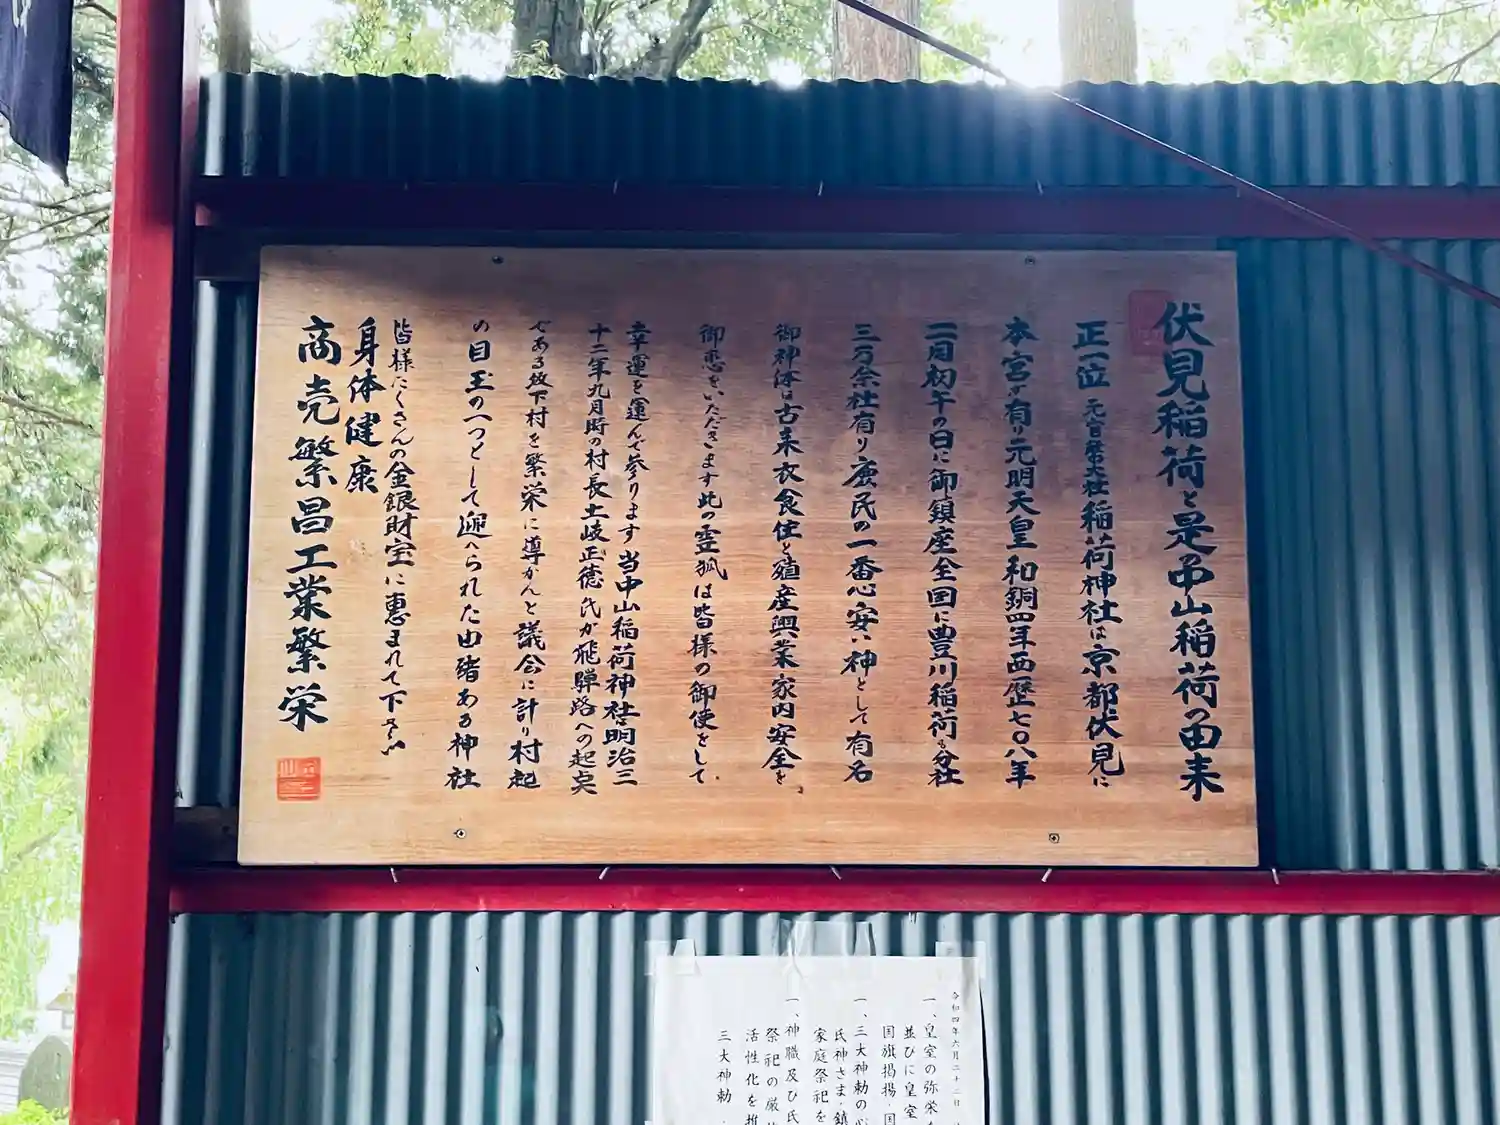 伏見稲荷と是の中山稲荷の由来
正一位 元官幣大社稲荷神社は京都伏見に
本宮が有り元明天皇和銅四年西歴七〇八年
二月初午の日に御鎮座全国に豊川稲荷も分社
三万余社有り庶民の一番心安い神として有名
御神体は古来衣食住と殖産興業家内安全を
御恵をいただきます此の霊狐は皆様の御使をして
幸運を運んで参ります当中山稲荷神社は明治三
十二年九月時の村長土岐正徳氏が飛騨路への起点
である故下村を繁栄に導かんと議会に計り村起
の目玉の一つとして迎へられた由緒ある神社
皆様たくさんの金銀財宝に恵まれて下さい
身体健康
商売繁昌工業繁栄
令和四年六月二十二日
一、皇室の弥栄
並びに皇室
国旗掲揚・国
一、三大神勅の心
氏神さま・鎮
家庭祭祀を
一、神職及び氏
祭祀の厳
活性化を推
三大神勅